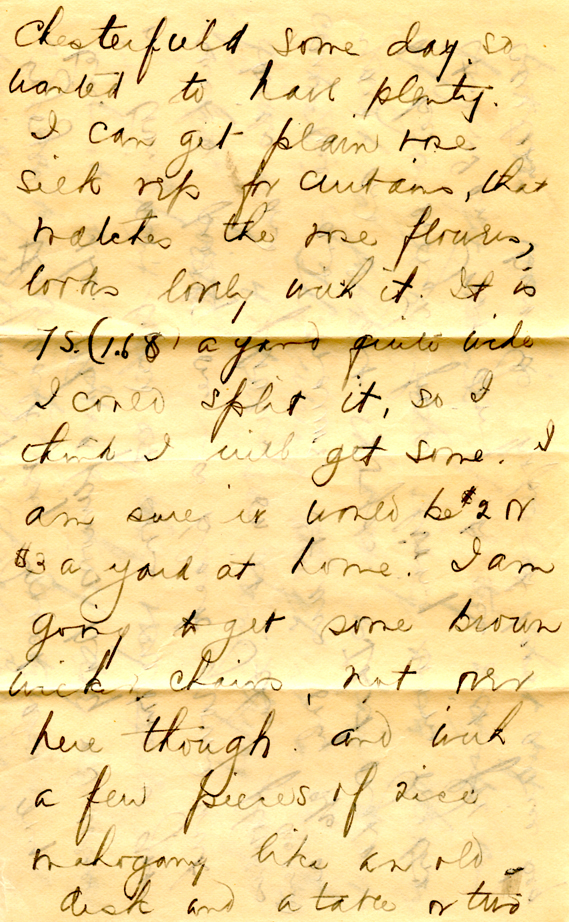 Chesterfield some day, so
wanted to have plenty.
I can get plain rose
silk rep for curtains, that
matches the rose flowers,
looks lovely with it. It is
7s. (1.68) a yard quite wide
I could split it, so I
think I will get some. I
am sure it would be $2 or
$3 a yard at home. I am
going to get some brown
wicker chairs, not over
here though and with
a few pieces of nice
mahogany like an old
desk and a table or two